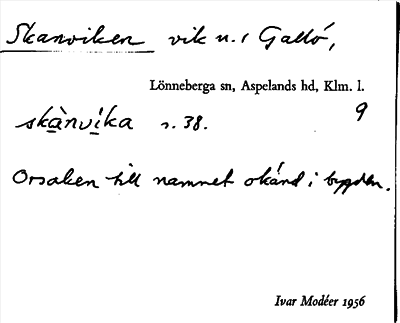 Skanviken vik n. i Gallö,
Lönneberga sn, Aspelands hd, Klm. l.
9
skànvika s. 38.
Orsaken till namnet okänd i bygden.
Ivar Modéer 1956